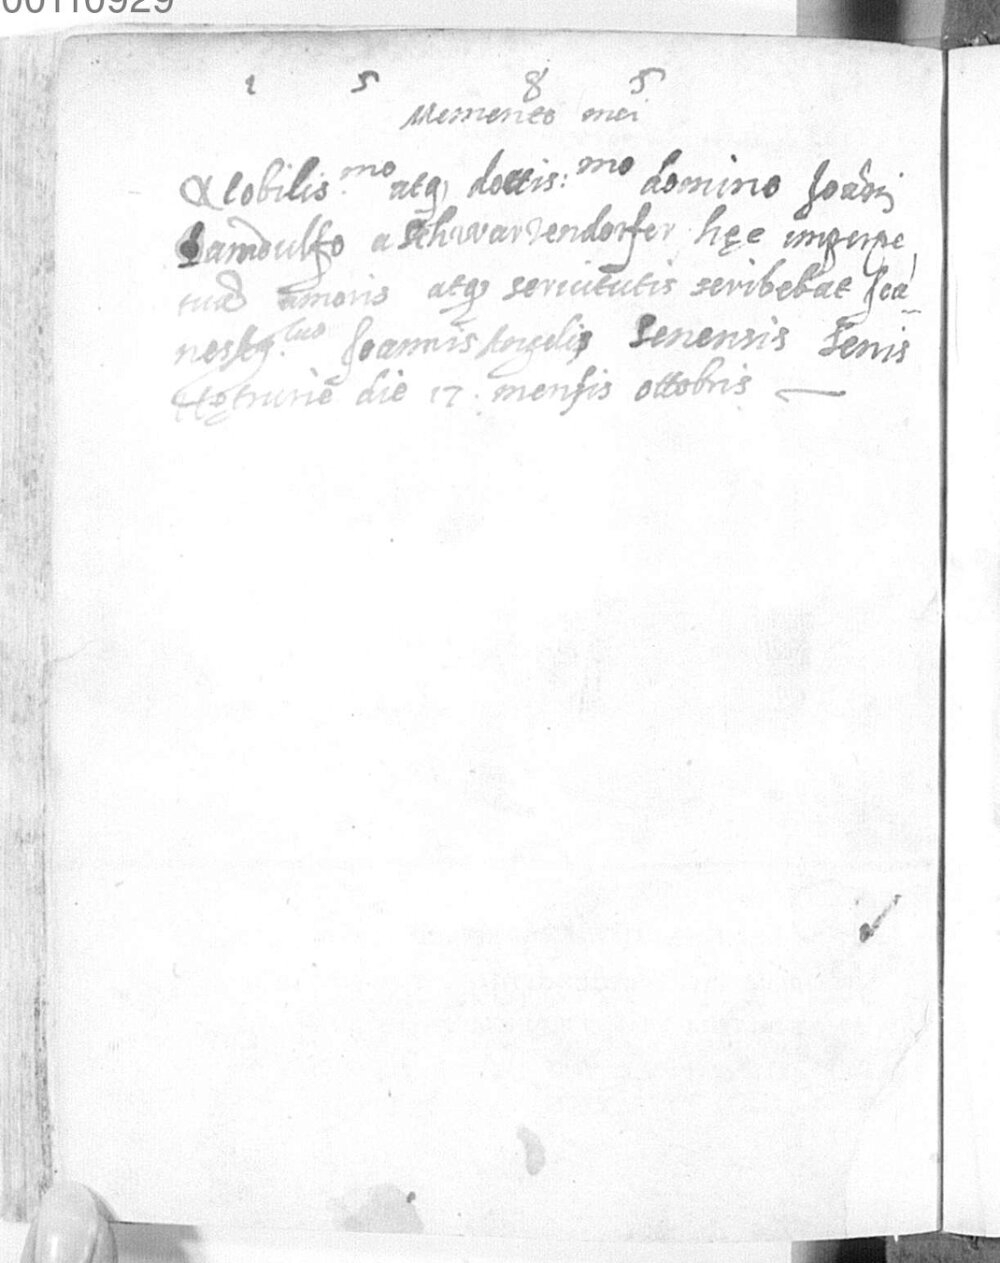 00110929
1 5 8 5
Memento mei
Nobilis:mo atq₃ dottis:mo domino Joāni
Landulfo a Schwarzendorfer hęc
amoris atq₃ servitutis scribebat Joā
Joannis Angelis Senensis Senis
die 17 mensis ottobris